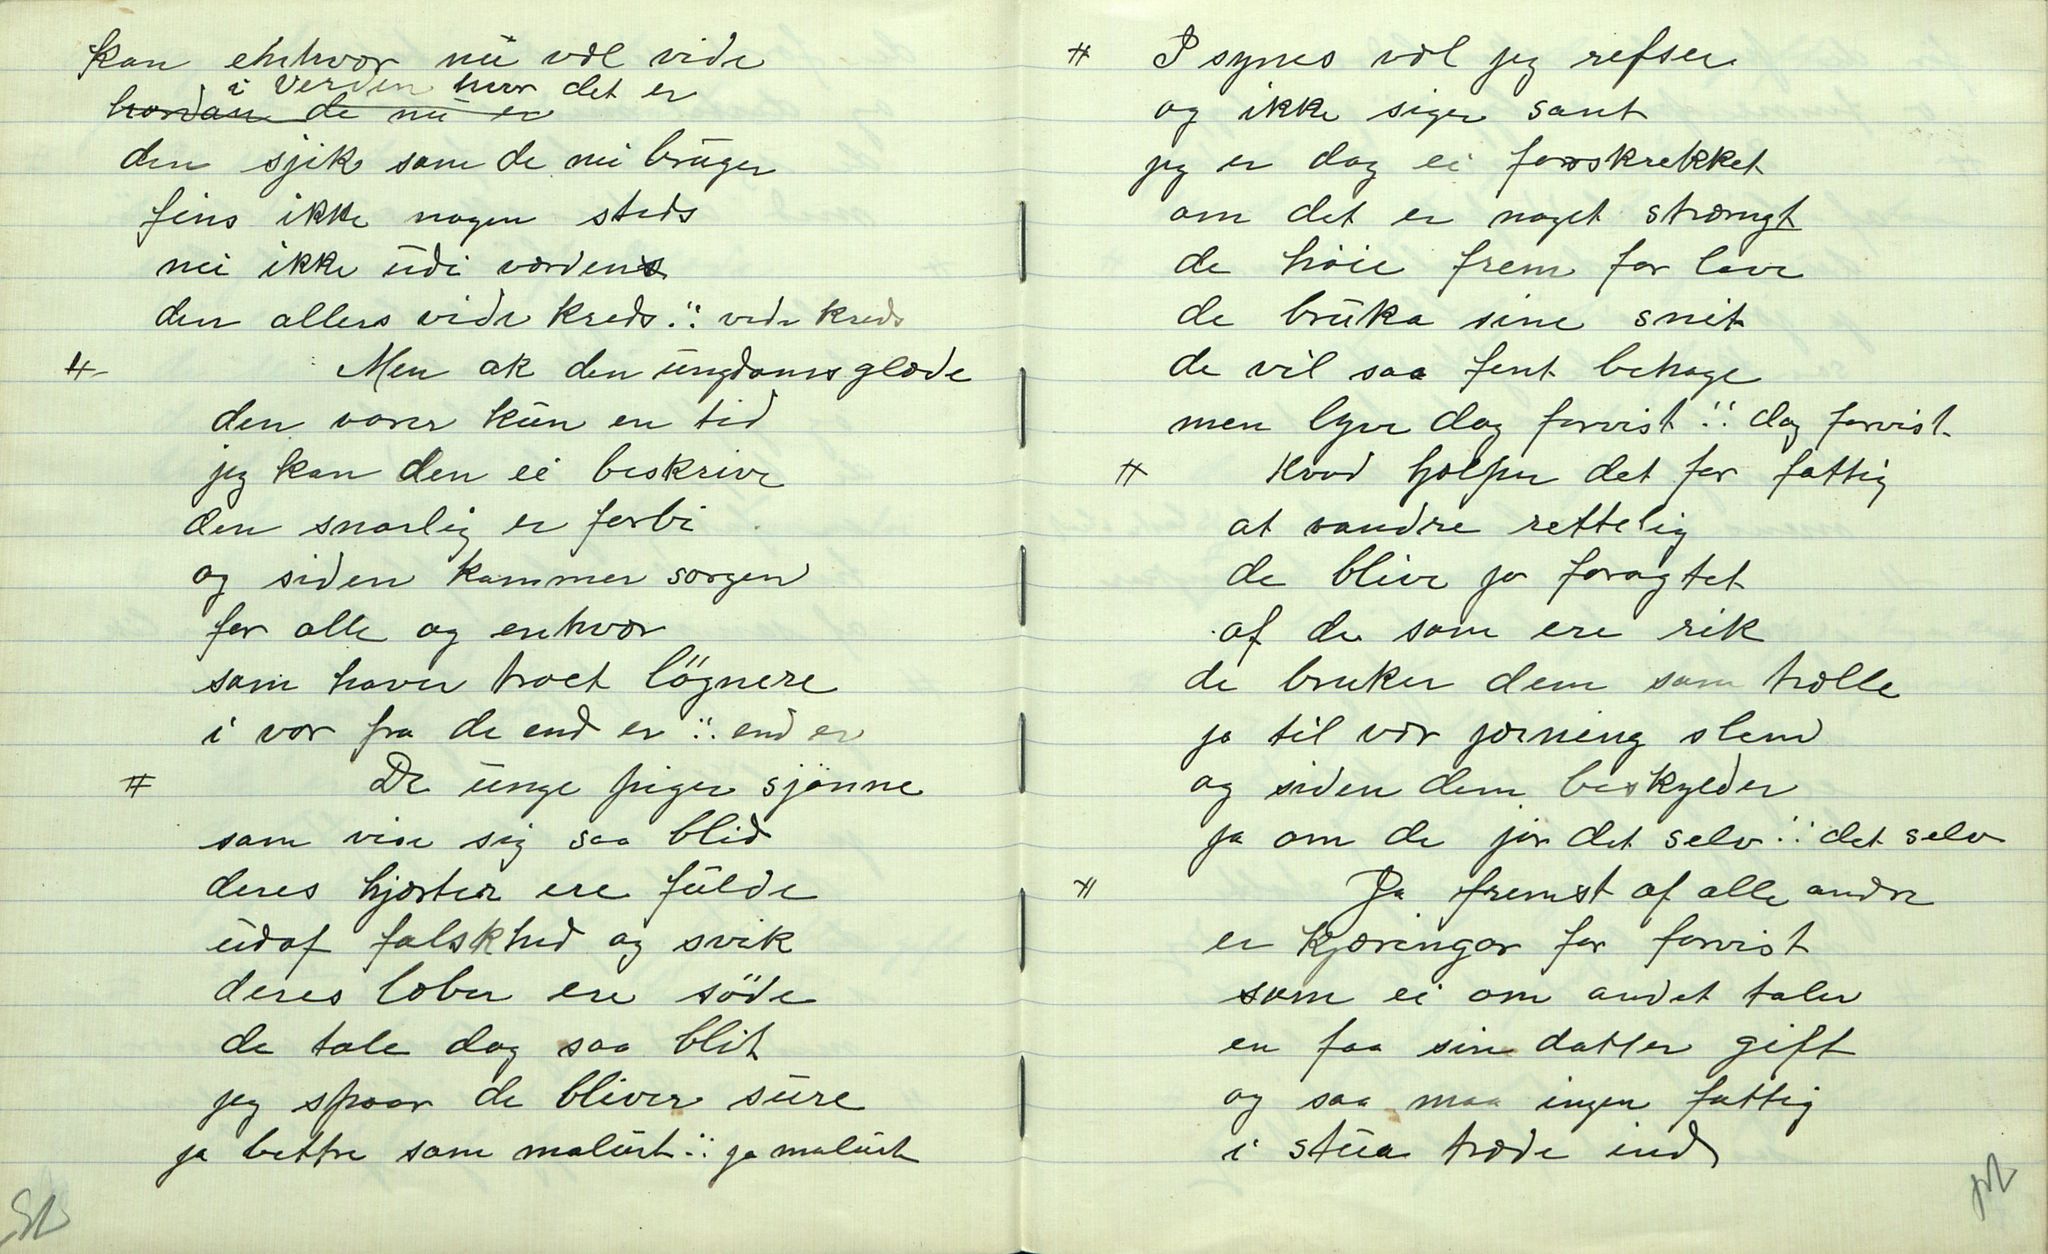 kan ehnhvor nú væl vide
i Verden hvor det er
hvordan de nú er
den sjik som de nú brúger
fins ikke nogen steds
nei ikke údi værdens
den allers vide kreds :: vide kreds
# Men ak den úngdoms glæde
den varer kún en tid
jeg kan den ei beskrive
den snarlig er forbi
og siden kommer sorgen
for alle og enhvær
som haver troet lögnere
i vor fra de end er :: end er
# De únge piger sjönne
som vise sig saa blid
deres hjærter ere fúlde
údaf falskhed og svik
deres læber ere söde
de tale dog saa blit
jeg spaar de bliver súre
ja bettre som malúrt :: ja malúrt
# I synes væl jeg refser
og ikke siger sant
jeg er dog ei forskrekket
om det er noget strængt
de höie frem for lave
de brúka sine snit
de vil saa fent behage
men lyve dog forvist :: dog forvist
# Hvad hjælper det for fattig
at vandre rettelig
de blive jo foragtet
af de som ere rik
de bruker dem som trælle
ja til vær jærning slem
og siden dem beskylder
ja om de jør det selv :: det selv
# Ja fremst af alle andre
er kjæringar for forvist
som ei om andet taler
en faa sin datter gift
og saa maa ingen fattig
i stúa træde ind